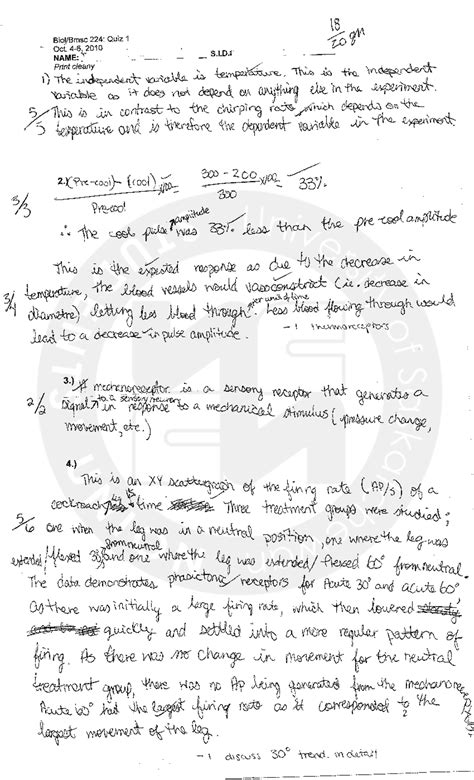 18/20
Biol/Bmsc 224: Quiz 1
Oct. 4-8, 2010
NAME:
S.I.D.:
Print cleany
1) The independent variable is temperature. This is the independent
variable as it does not depend on anything else in the experiment.
5/5 This is in contrast to the chirping rate, which depends on the
temperature and is therefore the dependent variable in the experiment.
2.) (Pre-cool) - (cool) x100 300 - 200 x100 = 33%.
Pre-cool 300
3/3
∴ The cool pulse amplitude was 33% less than the pre cool amplitude
This is the expected response as due to the decrease in
3/4 temperature, the blood vessels would vasoconstrict (ie. decrease in
diametre) letting less blood through per unit of time. Less blood flowing through would
lead to a decrease in pulse amplitude. -1 thermoreceptors
3.) A mechanoreceptor is a sensory receptor that generates a
2/2 signal to a sensory neuron in response to a mechanical stimulus (pressure change,
movement, etc.)
4.)
This is an XY scattergraph of the firing rate (AP/s) of a
cockroach leg vs time. Three treatment groups were studied;
5/6 one when the leg was in a neutral position, one where the leg was
extended/flexed 30° from neutral and one where the leg was extended/flexed 60° from neutral.
The data demonstrates phasictonic receptors for Acute 30° and acute 60°,
as there was initially a large firing rate, which then lowered
quickly and settled into a more regular pattern of
firing. As there was no change in movement for the neutral
treatment group, there was no AP being generated from the mechanoreceptors
Acute 60° had the largest firing rate as it corresponded to the
largest movement of the leg.
-1 discuss 30° trend in detail
University of Saskatchewan